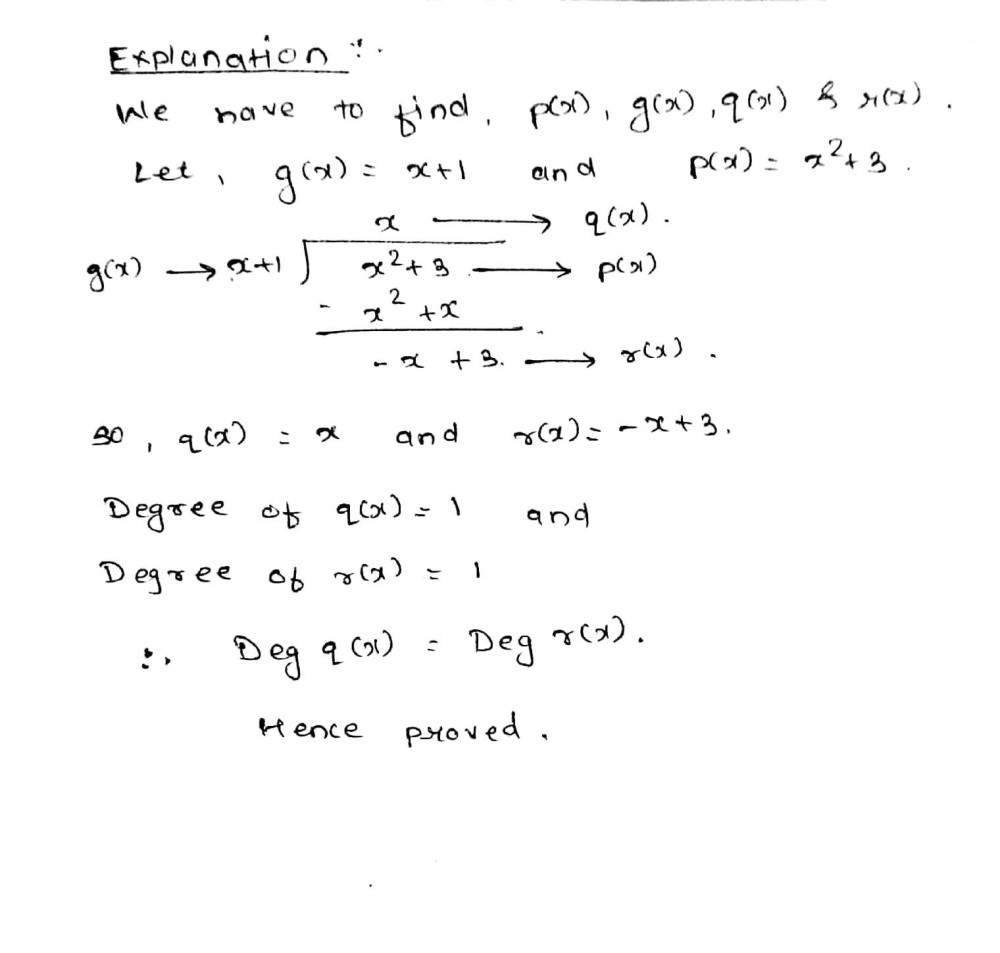 Explanation :.
We have to find, p(x), g(x), q(x) & r(x).
Let, g(x) = x+1 and p(x) = x²+3.
x ⟶ q(x).
g(x) ⟶ x+1 ) x²+3 ⟶ p(x)
- x² + x
- x + 3. ⟶ r(x).
so, q(x) = x and r(x) = -x+3.
Degree of q(x) = 1 and
Degree of r(x) = 1
∴, Deg q(x) = Deg r(x).
Hence proved.